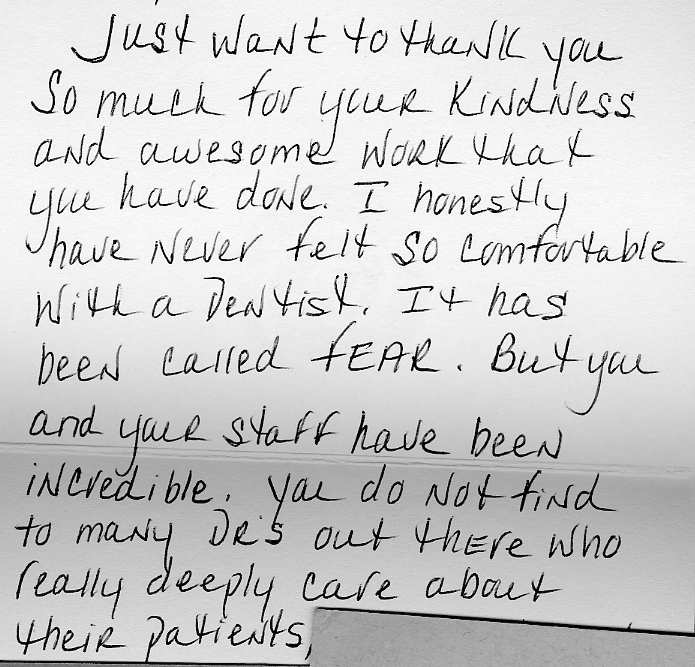 Just want to thank you
So much for your Kindness
and awesome work that
you have done. I honestly
have Never felt so comfortable
With a Dentist. It has
been called fEAR. But you
and your staff have been
incredible. you do Not find
to many DR'S out there who
really deeply care about
their patients,